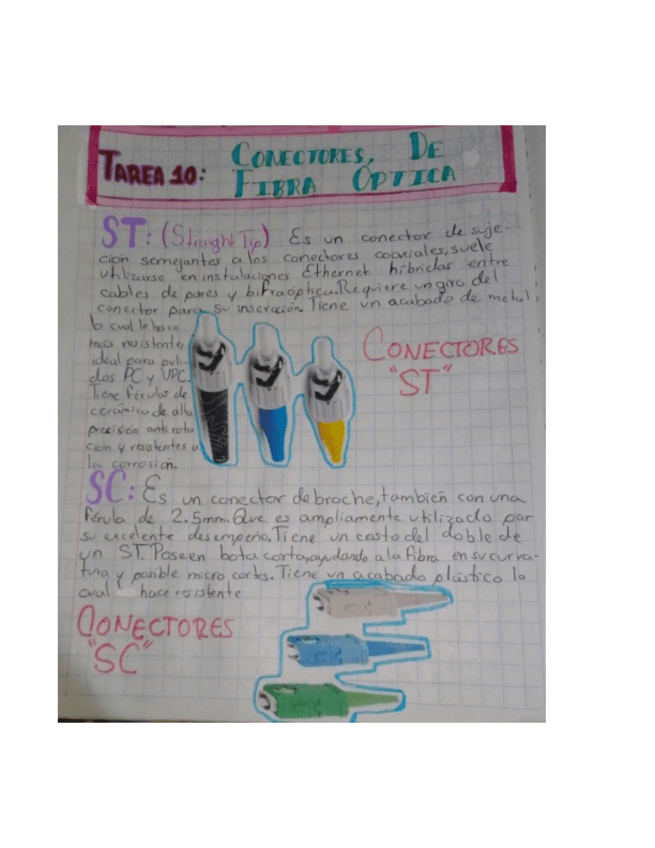 TAREA 10: CONECTORES, DE
FIBRA ÓPTICA
ST: (Straight Tip) Es un conector de suje-
ción semejantes a los conectores coaxiales, suele
utilizarse en instalaciones Ethernet híbridas entre
cables de pares y bifraoptica. Requiere un giro del
conector para su inserción. Tiene un acabado de metal,
lo cual lo hace
mas resistente,
ideal para puli-
dos PC y UPC.
Tiene férulas de
cerámica de alta
precisión anti rota
ción y resistentes a
la corrosión.
CONECTORES
"ST"
SC: Es un conector de broche, también con una
férula de 2.5mm. Que es ampliamente utilizado por
su excelente desempeño. Tiene un costo del doble de
un ST. Poseen bota corta, ayudando a la fibra en su curva-
tura y posible micro cortes. Tiene un acabado plástico lo
cual hace resistente
CONECTORES
"SC"